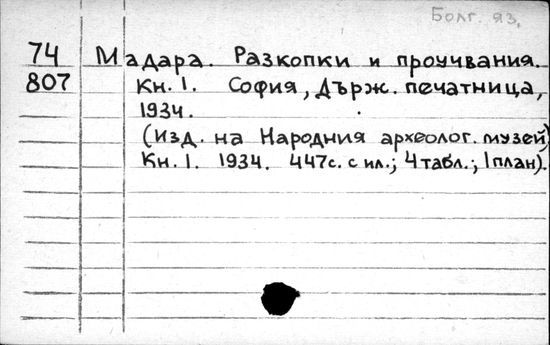 Болг. яз.
74 Мадара. Разкопки и проучвания.
807 Кн. 1. София, Държ. печатница,
1934.
(Изд. на Народния археолог. музей)
Кн. 1. 1934. 447с. с ил.; 4 табл.; 1 план).